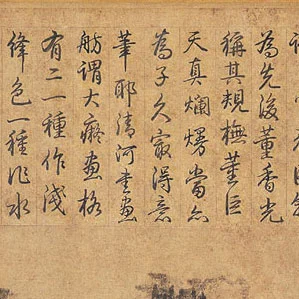 為先後董香光
稱其規橅董巨
天真爛熳當亦
為子久最得意
筆耶清河書畫
舫謂大癡畫格
有二一種作淺
絳色一種作水